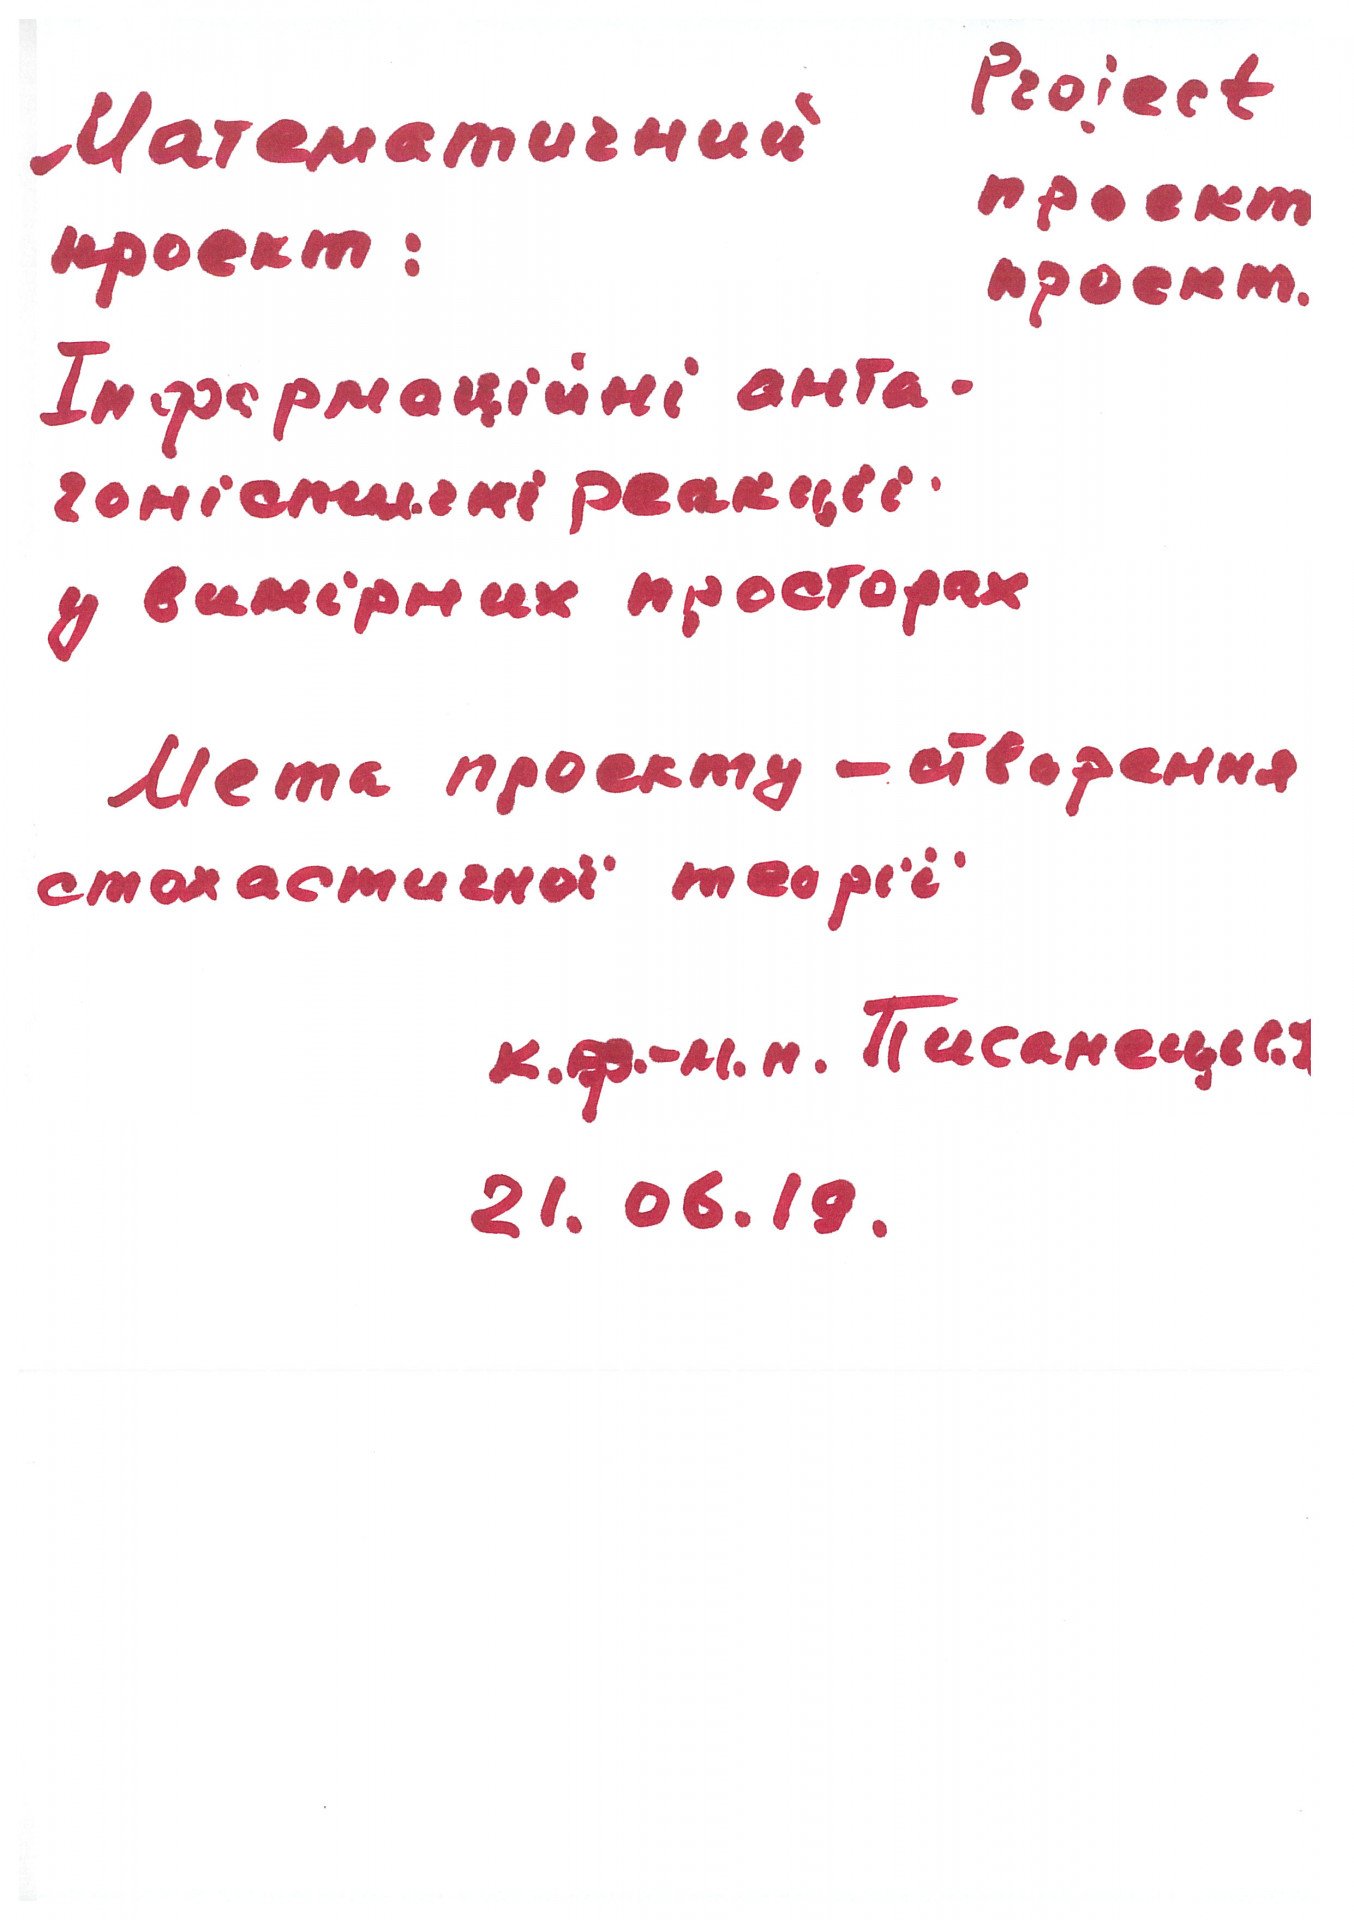 Project
проект
проект.
Математичний
проект:
Інформаційні анта-
гоністичні реакції
у вимірних просторах
Мета проекту – створення
стохастичної теорії
к.ф.-м.н.
21.06.19.